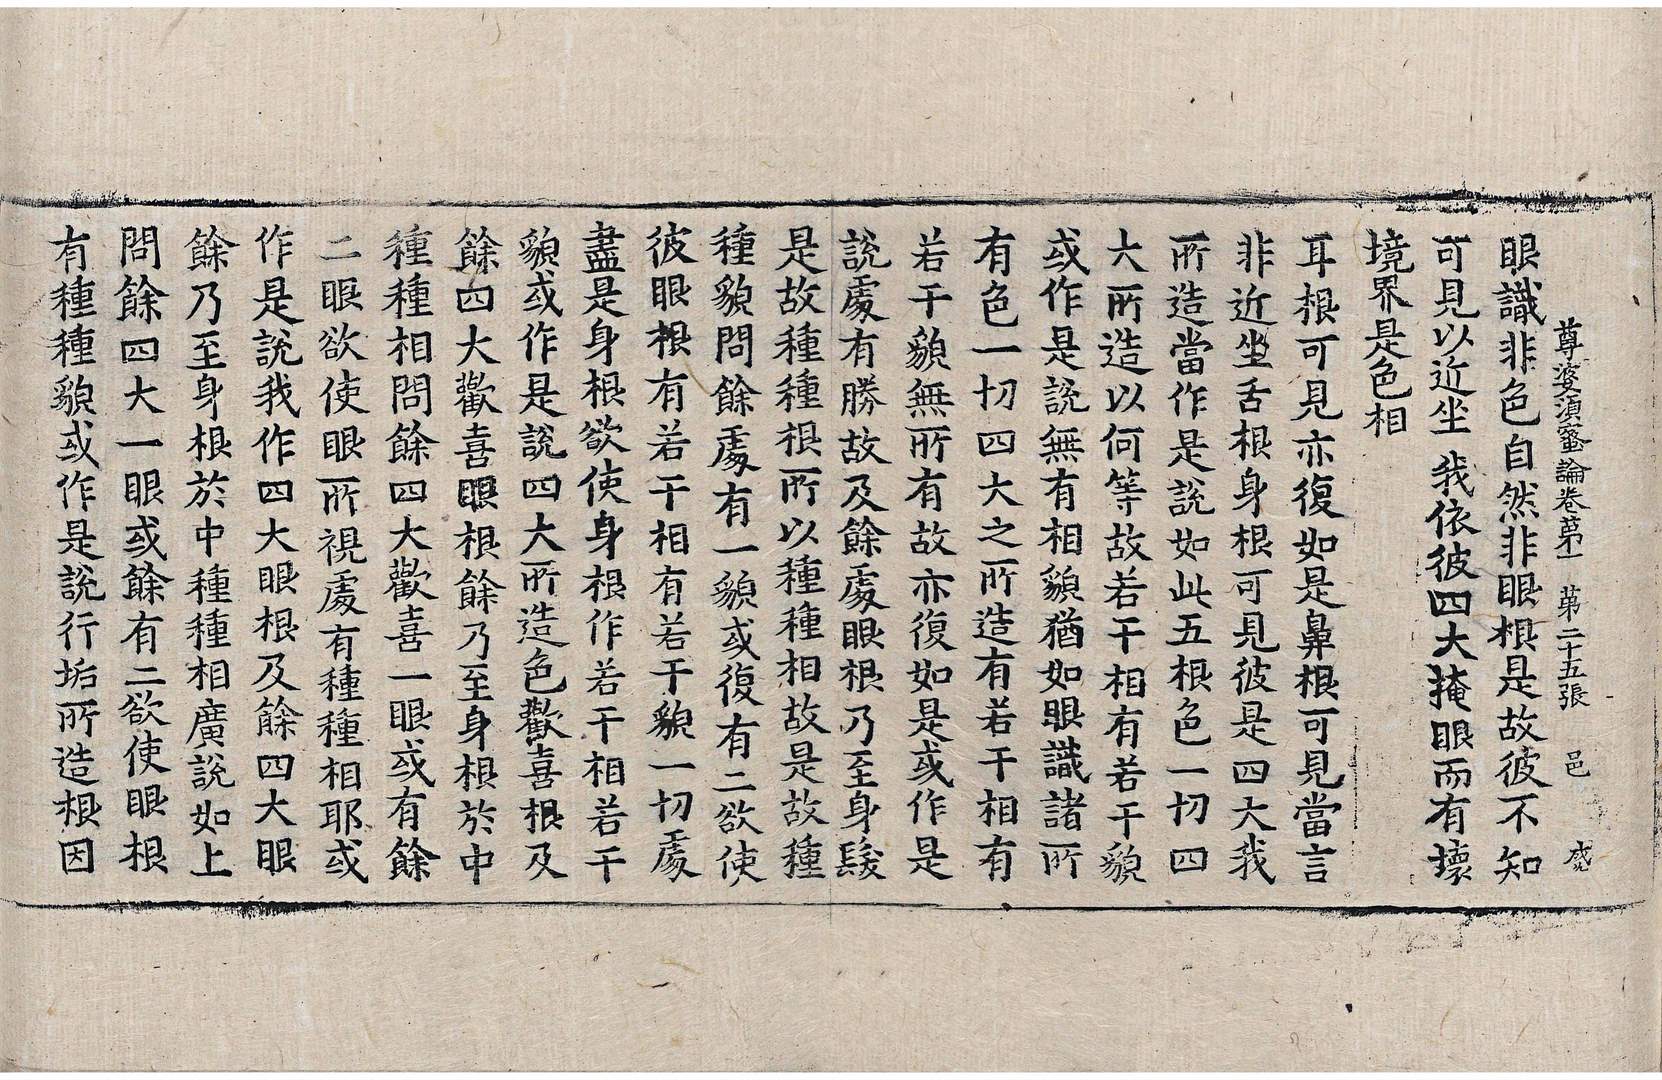 尊婆湏蜜論卷苐一 苐二十五張 邑
眼識非色自然非眼根是故彼不知
可見以近坐我依彼四大掩眼而有壞
境界是色相
耳根可見亦復如是鼻根可見當言
非近坐舌根身根可見彼是四大我
所造當作是說如此五根色一切四
大所造以何等故若干相有若干貌
或作是說無有相貌猶如眼識諸所
有色一切四大之所造有若干相有
若干貌無所有故亦復如是或作是
說處有勝故及餘處眼根乃至身髮
是故種種根所以種種相故是故種
種貌問餘處有一貌或復有二欲使
彼眼根有若干相有若干貌一切處
盡是身根欲使身根作若干相若干
貌或作是說四大所造色歡喜根及
餘四大歡喜眼根餘乃至身根於中
種種相問餘四大歡喜一眼或有餘
二眼欲使眼所視處有種種相耶或
作是說我作四大眼根及餘四大眼
餘乃至身根於中種種相廣說如上
問餘四大一眼或餘有二欲使眼根
有種種貌或作是說行垢所造根因